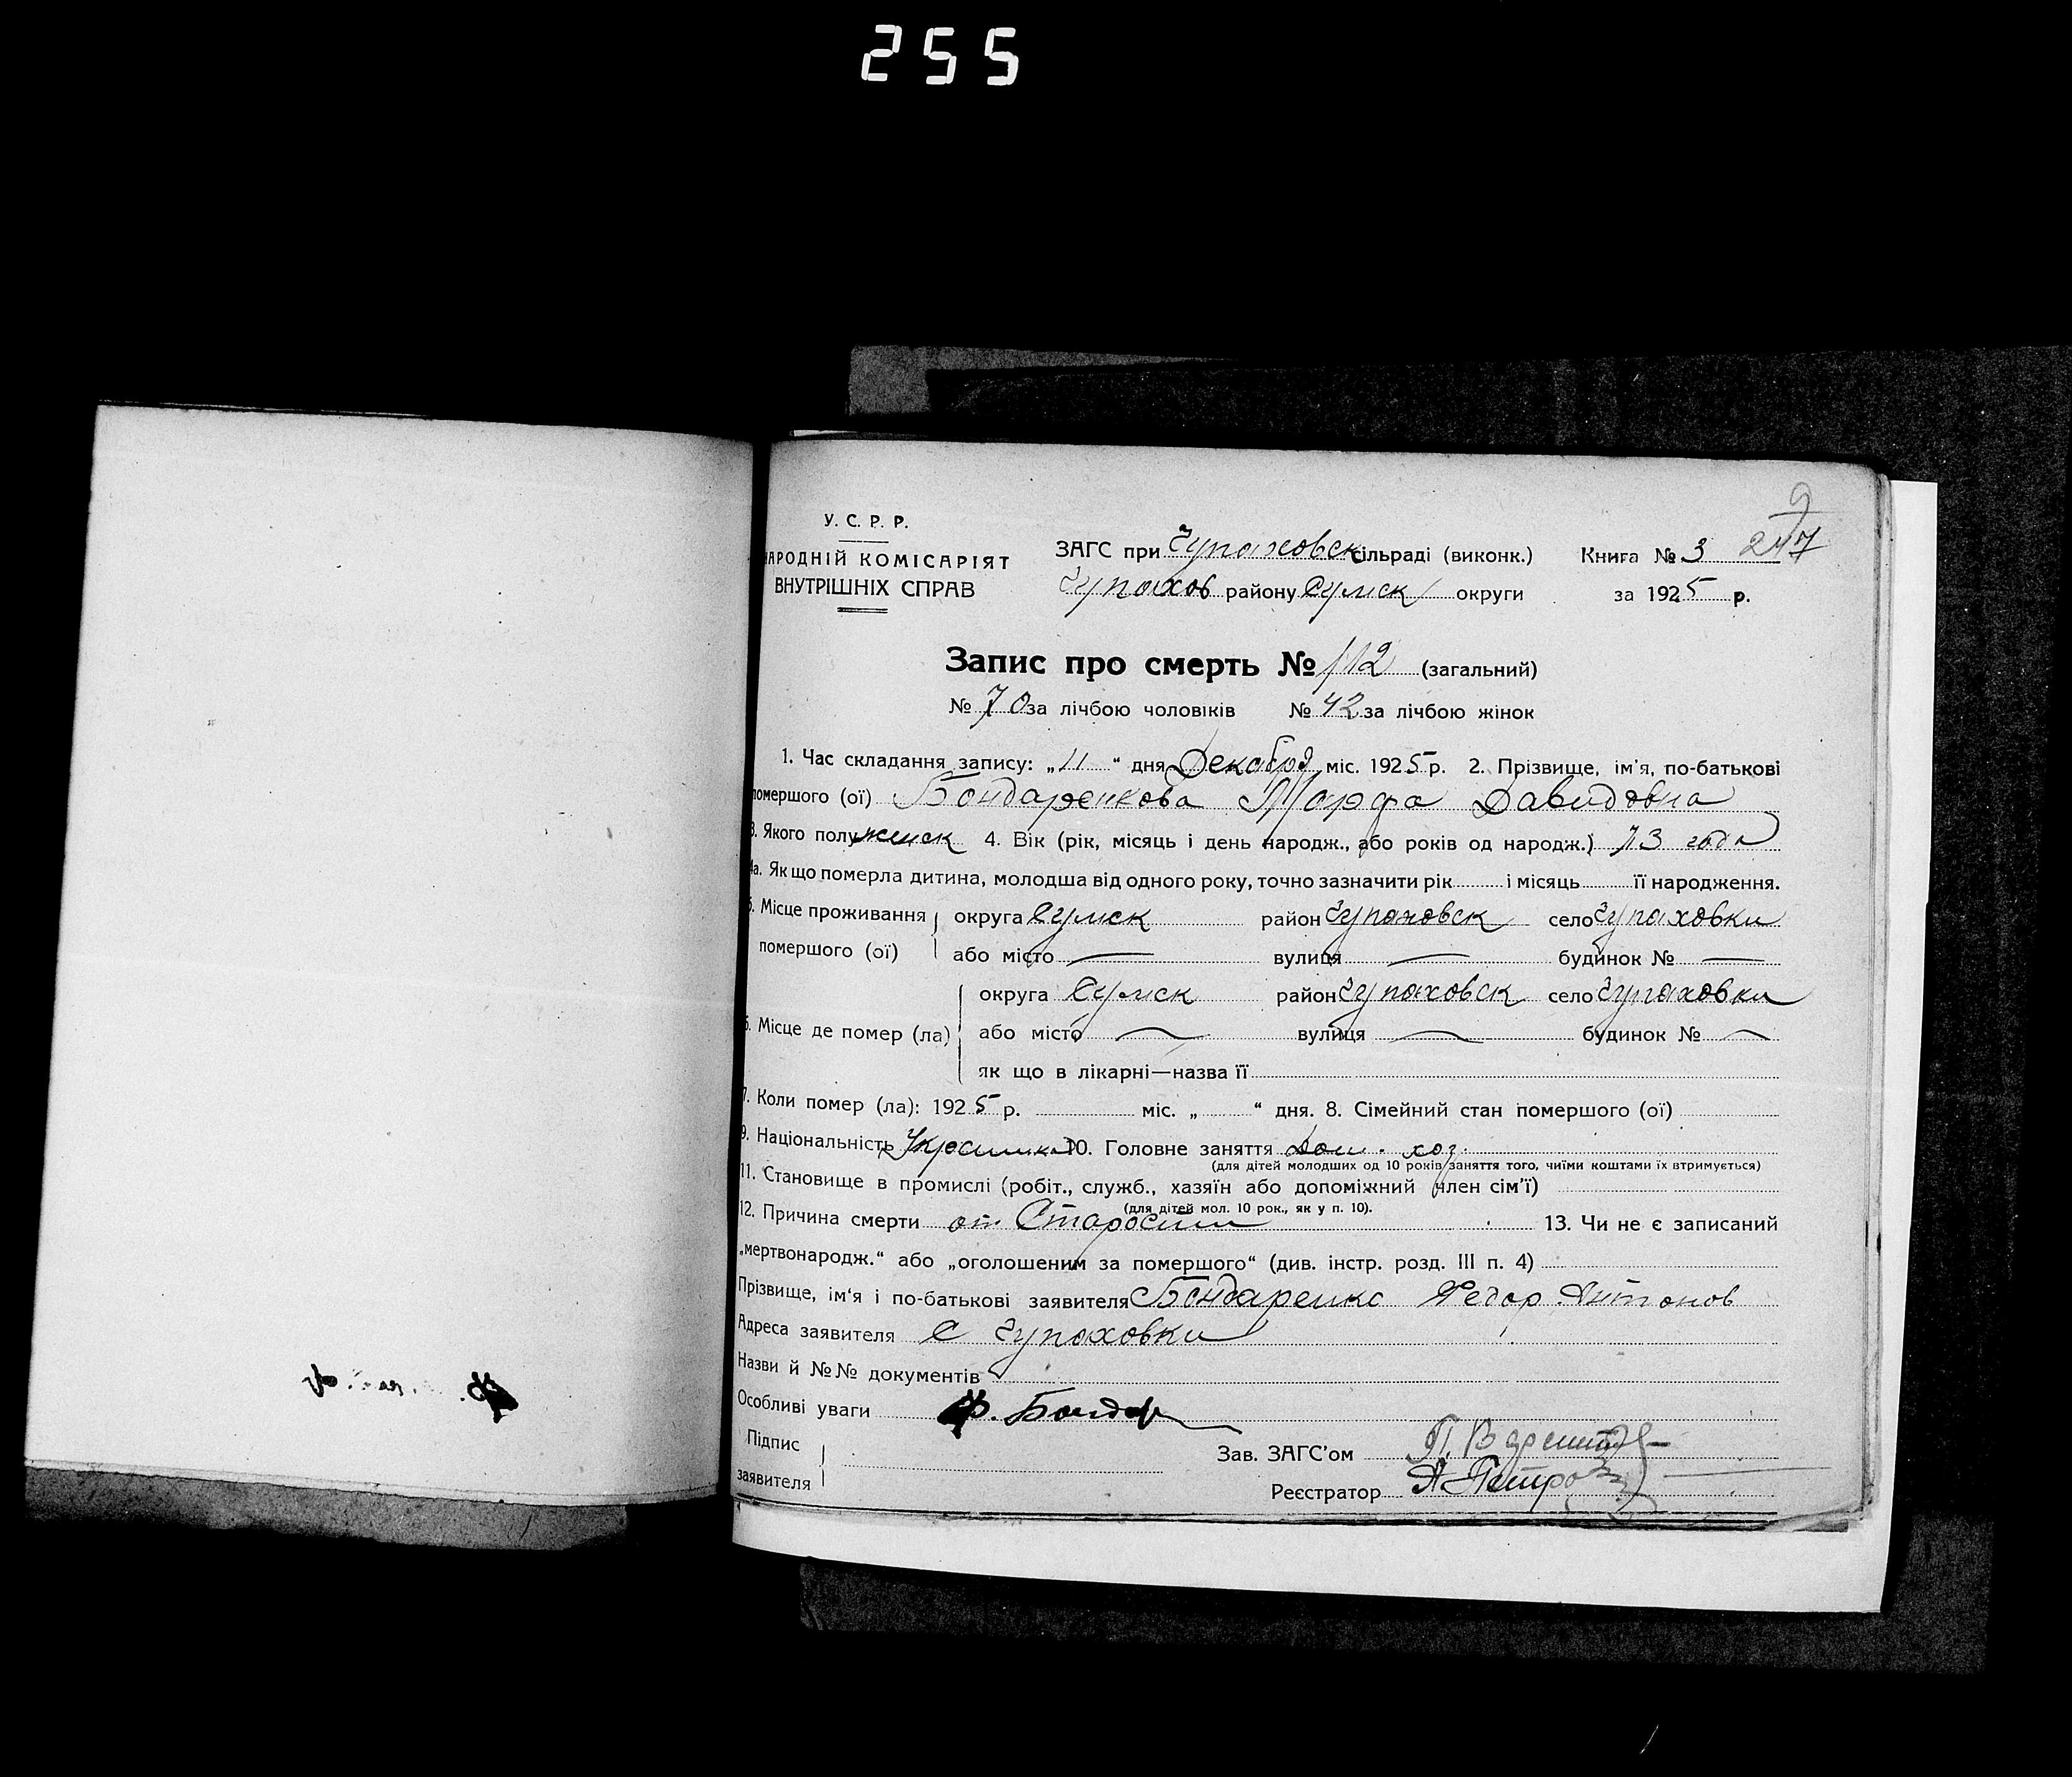 255
9
247
У. С. Р. Р.
НАРОДНІЙ КОМІСАРІЯТ
ВНУТРІШНІХ СПРАВ
ЗАГС при Чупаховск сільраді (виконк.) Книга № 3
Чупахов району Сумск округи за 1925 р.
Запис про смерть № 112 (загальний)
№ 70 за лічбою чоловіків № 42 за лічбою жінок
1. Час складання запису: „11“ дня Декабря міс. 1925 р. 2. Прізвище, ім'я, по-батькові
помершого (ої) Бондаренкова Марфа Давидовна
3. Якого полу женск 4. Вік (рік, місяць і день народж., або років од народж.) 73 года
4а. Як що померла дитина, молодша від одного року, точно зазначити рік і місяць її народження.
5. Місце проживання округа Сумск район Чупаховск село Чупаховки
помершого (ої) або місто — вулиця — будинок № —
округа Сумск район Чупаховск село Чупаховки
6. Місце де помер (ла) або місто — вулиця — будинок № —
як що в лікарні—назва її
7. Коли помер (ла): 1925 р. міс. „ “ дня. 8. Сімейний стан помершого (ої)
9. Національність 10. Головне заняття Дом. хоз.
(для дітей молодших од 10 років заняття того, чиїми коштами їх втримується)
11. Становище в промислі (робіт., служб., хазяїн або допоміжний член сім'ї)
(для дітей мол. 10 рок., як у п. 10).
12. Причина смерти от Старости 13. Чи не є записаний
„мертвонародж.“ або „оголошеним за помершого“ (див. інстр. розд. III п. 4)
Прізвище, ім'я і по-батькові заявителя Бондаренко Федор Антонов
Адреса заявителя С Чупаховки
Назви й №№ документів
Особливі уваги Ф. Бондар
Підпис
заявителя
Зав. ЗАГС'ом П.
Реєстратор А Петро